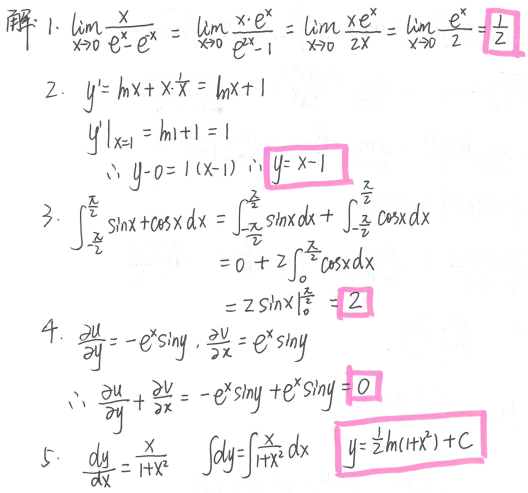 解: 1. lim_{x→0} x/(e^x - e^{-x}) = lim_{x→0} x·e^x/(e^{2x}-1) = lim_{x→0} xe^x/2x = lim_{x→0} e^x/2 = 1/2
2. y' = lnx + x·1/x = lnx + 1
y'|_{x=1} = ln1 + 1 = 1
∴ y-0 = 1(x-1) ∴ y = x-1
3. ∫_{-π/2}^{π/2} sinx + cosx dx = ∫_{-π/2}^{π/2} sinx dx + ∫_{-π/2}^{π/2} cosx dx
= 0 + 2∫_0^{π/2} cosx dx
= 2 sinx|_0^{π/2} = 2
4. ∂u/∂y = -e^x siny, ∂v/∂x = e^x siny
∴ ∂u/∂y + ∂v/∂x = -e^x siny + e^x siny = 0
5. dy/dx = x/(1+x²) ∫dy = ∫ x/(1+x²) dx y = 1/2 ln(1+x²) + C